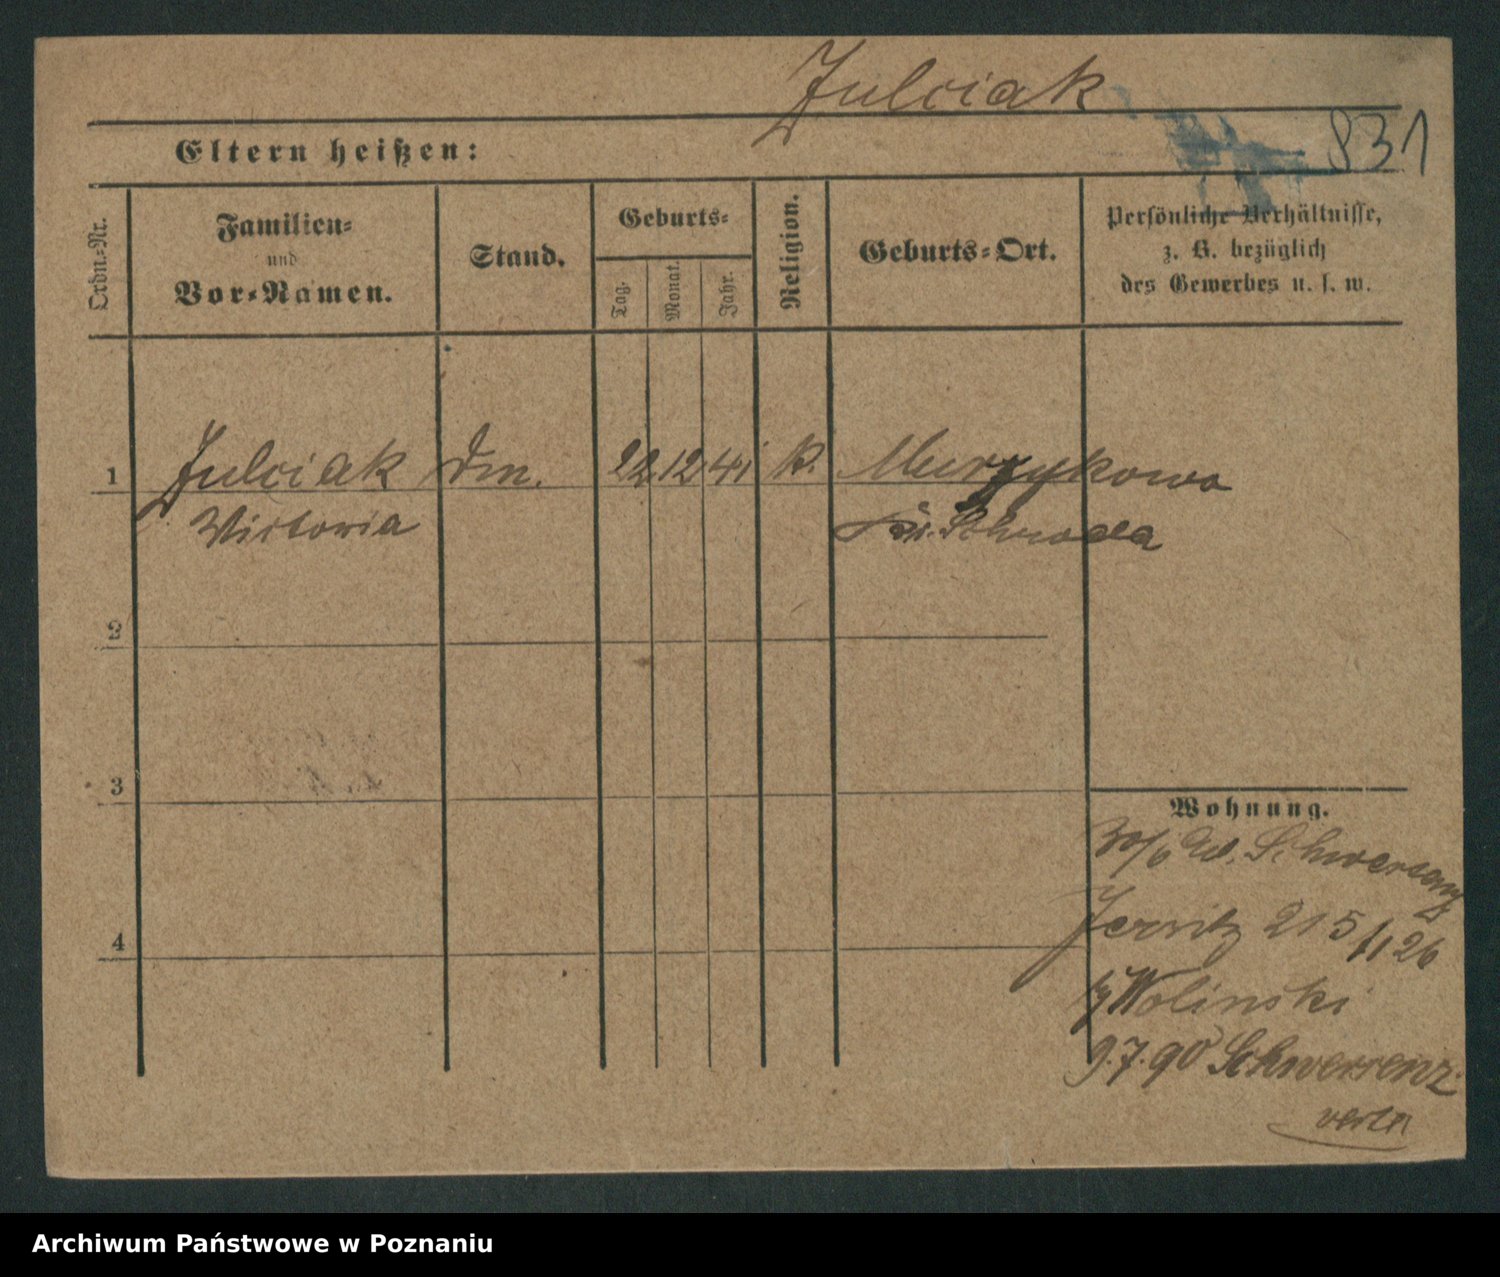 Julciak
Eltern heißen:
831
Ordn.-Nr.
Familien-
und
Vor-Namen.
Stand.
Geburts-
Tag.
Monat.
Jahr.
Religion.
Geburts-Ort.
Persönliche Verhältnisse,
z. B. bezüglich
des Gewerbes u. s. w.
1 Julciak Dm. 22 12 41 k. Murzykowo
Victoria Kr. Schroda
2
3
4
Wohnung.
30/6 Schwersenz
Jersitz 215 /1 26
Wolinski
9.7.90 Schwersenz
verzn
Archiwum Państwowe w Poznaniu